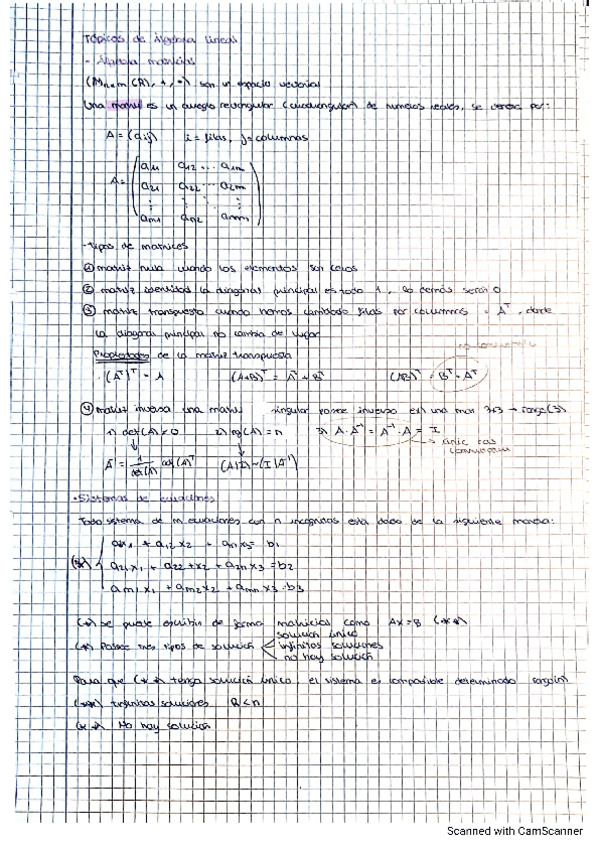 Tópicos de álgebra lineal
- Álgebra matricial
(Mnxm (R), +, •) son un espacio vectorial
Una matriz es un arreglo rectangular (cuadrangular) de números reales, se denota por:
A = (aij) i = filas, j = columnas
A = ( a11 a12 ... a1m
a21 a22 ... a2m
⋮ ⋮ ⋮
am1 am2 amm )
- Tipos de matrices
① matriz nula cuando los elementos son ceros
② matriz identidad la diagonal principal es todo 1, lo demás será 0
③ matriz transpuesta cuando hemos cambiado filas por columnas = A^T, donde
la diagonal principal no cambia de lugar
Propiedades de la matriz transpuesta
no conmutativa
· (A^T)^T = A (A+B)^T = A^T + B^T (AB)^T = B^T · A^T
④ matriz inversa una matriz singular posee inversa ex) una mat 3x3 → rango(3)
1) det(A) ≠ 0 2) rg(A) = n 3) A·A^-1 = A^-1·A = I
→ único caso
conmutativa
A^-1 = 1/det(A) adj(A)^T (A|I) ~ (I|A^-1)
· Sistemas de ecuaciones
Todo sistema de m ecuaciones con n incógnitas está dado de la siguiente manera:
a11x1 + a12x2 + a1nx3 = b1
(*) { a21x1 + a22+x2 + a2nx3 = b2
am1x1 + am2x2 + amnx3 = b3
(*) se puede escribir de forma matricial como AX = B (**)
solución única
(*) Posee tres tipos de solución infinitas soluciones
no hay solución
Para que (**) tenga solución única, el sistema es compatible determinado
(**) infinitas soluciones R<n
(**) No hay solución
Scanned with CamScanner